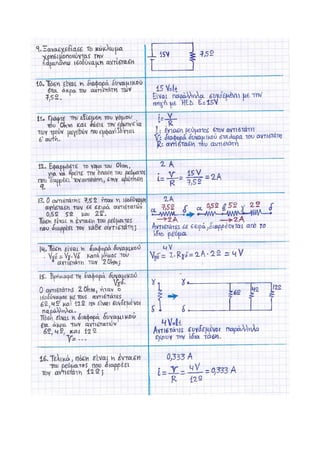 9. Ξανασχεδίασε το κύκλωμα
χρησιμοποιώντας την
ισοδύναμη αντίσταση
15V
7,5Ω
10. Πόση είναι η διαφορά δυναμικού
στα άκρα του αντιστάτη των
7,5Ω.
15 Volt
Είναι παράλληλα συνδεμένη με την
πηγή με ΗΕΔ Ε=15V
11. Γράψτε την εξίσωση του νόμου
του Ohm και δώστε την ερμηνεία
των τριών μεγεθών που εμφανίζονται
σ' αυτή.
i = V/R
i: ένταση ρεύματος στον αντιστάτη
V: διαφορά δυναμικού στα άκρα του αντιστάτη
R: αντίσταση του αντιστάτη
12. Εφαρμόστε το νόμο του Ohm,
για να βρείτε την ένταση του ρεύματος
που διαρρέει τον αντιστάτη, στην ερώτηση
9.
2 A
i = V/R = 15V/7,5Ω = 2A
13. Ο αντιστάτης 7,5Ω ήταν η ισοδύναμη
αντίσταση των σε σειρά αντιστατών
0,5Ω 5Ω και 2Ω.
Πόση είναι η ένταση του ρεύματος
που διαρρέει τον κάθε αντιστάτη;
2A
α 7,5Ω δ α 0,5Ω β 5Ω γ 2Ω δ
→2A →2A
Αντιστάτες σε σειρά, διαρρέονται από το
ίδιο ρεύμα
14. Πόση είναι η διαφορά δυναμικού
Vγδ = Vγ-Vδ κατά μήκος του
αντιστάτη των 2 Ohm;
4V
Vγδ = i·Rγδ = 2A·2Ω = 4V
15. Βρήκαμε τη διαφορά δυναμικού
Vγδ.
Ο αντιστάτης 2 Ohm, ήταν ο
ισοδύναμος με τους αντιστάτες
6Ω, 4Ω και 12Ω που είναι συνδεμένοι
παράλληλα.
Πόση είναι η διαφορά δυναμικού
στα άκρα των αντιστατών
6Ω, 4Ω, και 12Ω
V=...
γ γ
6Ω 4Ω 12Ω
δ δ
4 Volt
Αντιστάτες συνδεμένοι παράλληλα
έχουν την ίδια τάση.
16. Τελικά, πόση είναι η ένταση
του ρεύματος που διαρρέει
τον αντιστάτη 12Ω;
0,333 A
i = V/R = 4V/12Ω = 0,333 A